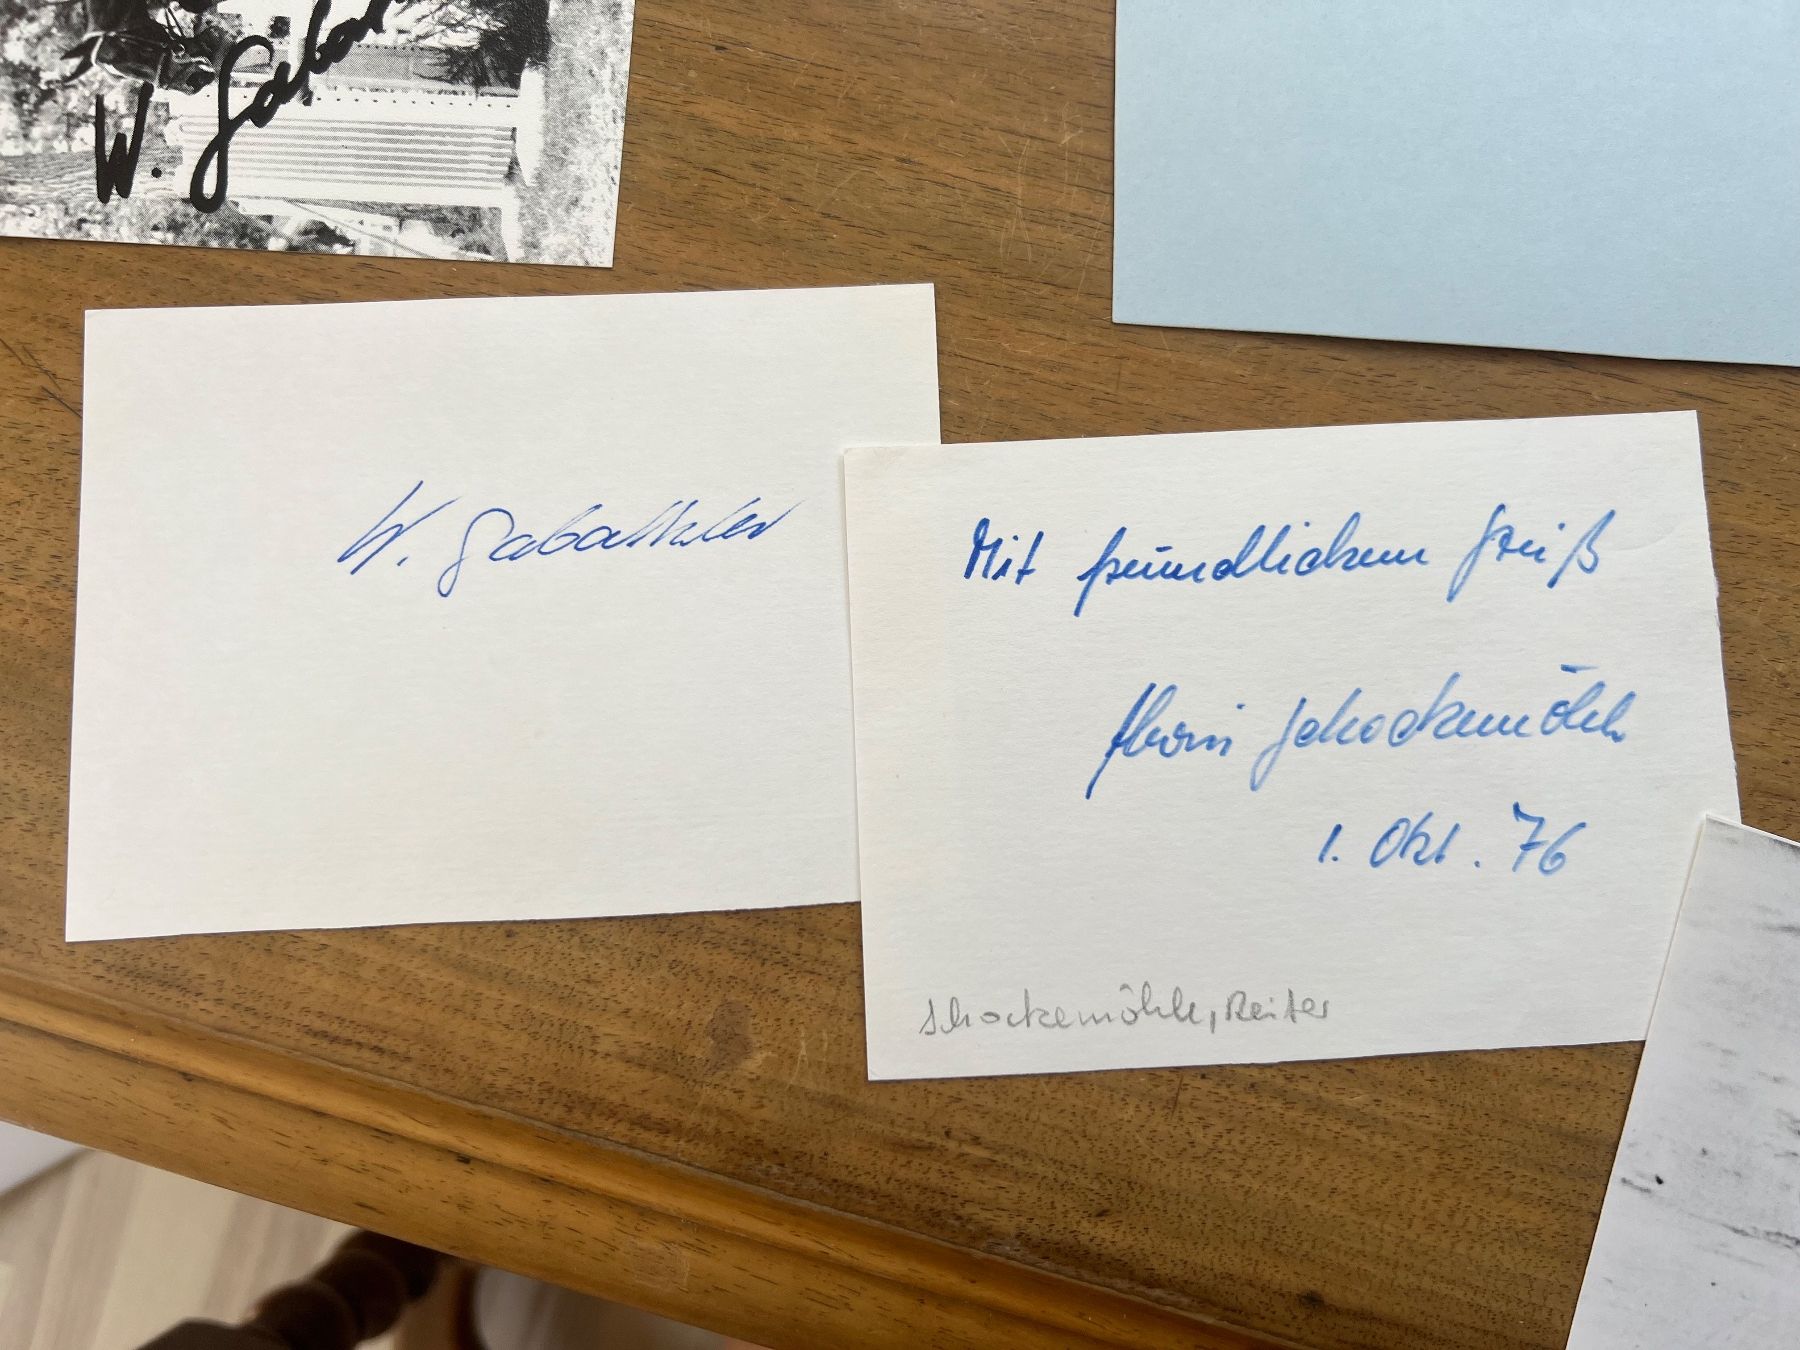 W. Gaba
W. Gabathuler
Mit freundlichem Gruß
Alwin Schockemöhle
1. Okt. 76
Schockemöhle, Reiter